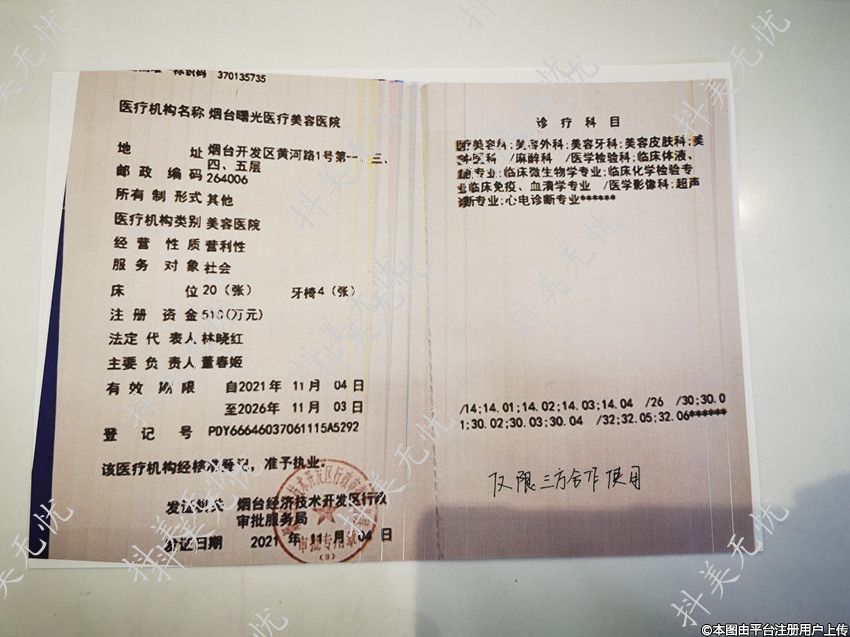 标识码 370135735
医疗机构名称 烟台曙光医疗美容医院
地 址 烟台开发区黄河路1号第一、三、
四、五层
邮政编码 264006
所有制形式 其他
医疗机构类别 美容医院
经营性质 营利性
服务对象 社会
床 位 20 (张) 牙椅4 (张)
注册资金 510(万元)
法定代表人 林晓红
主要负责人 董春姬
有效期限 自2021年 11月 04日
至2026年 11月 03日
登记号 PDY66646037061115A5292
该医疗机构经核准登记，准予执业。
发证机关 烟台经济技术开发区行政
审批服务局
发证日期 2021年 11月 04日
诊疗科目
医疗美容科;美容外科;美容牙科;美容皮肤科;美
容中医科 /麻醉科 /医学检验科;临床体液、
血液专业;临床微生物学专业;临床化学检验专
业临床免疫、血清学专业 /医学影像科;超声
诊断专业;心电诊断专业******
/14;14.01;14.02;14.03;14.04 /26 /30;30.0
1;30.02;30.03;30.04 /32;32.05;32.06******
仅限三方合作使用
抖美无忧
©本图由平台注册用户上传